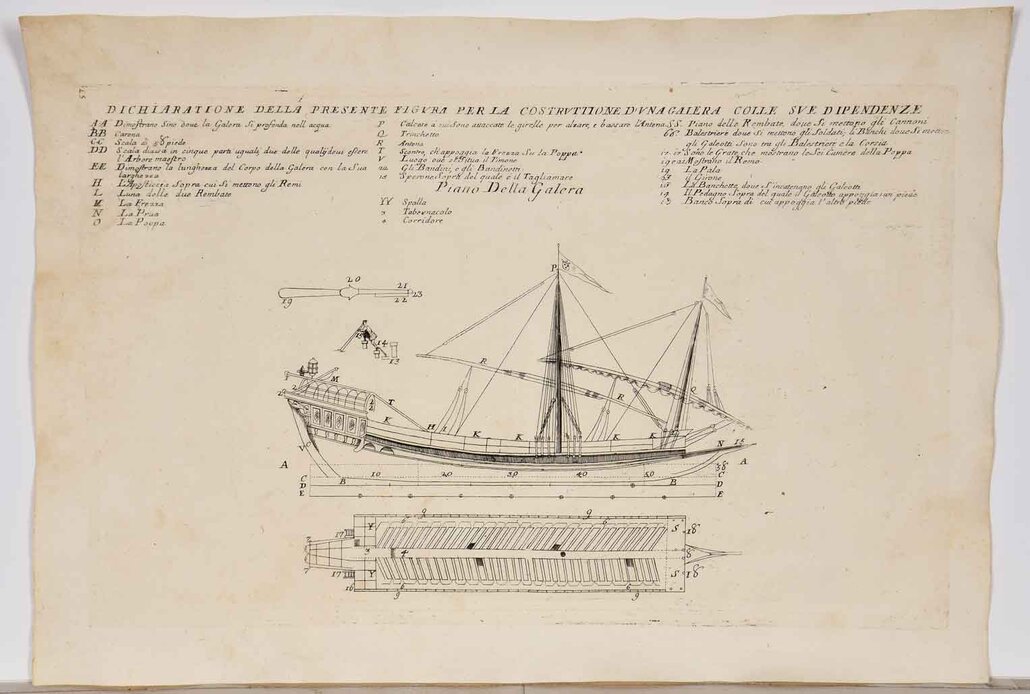 DICHIARATIONE DELLA PRESENTE FIGVRA PER LA COSTRVTIONE D'VNA GALERA COLLE SVE DIPENDENZE
AA Dimostrano Sino doue la Galera Si profonda nell acqua
BB Carena
CC Scala di piede
DD Scala diuisa in cinque parti uguali, due delle quali deui essere
l'Arbore maestro
EE Dimostrano la lunghezza del Corpo della Galera con la Sua
larghezza
H L'Aposticcio Sopra cui Si mettono gli Remi
L Luna delle due Rembate
M La Frezza
N La Prua
O La Poopa
P Calcese a cui sono attaccate le girelle per alzare, e bassare l'Antena
Q Trinchetto
R Antena
T chappoggia la Frezza Su la Poppa
V Luogo oue Situa il Timone
uu Gli Bandini, e gli Bandinetti
15 Sperone Sopra del quale è il Tagliamare
Piano Della Galera
YY Spalla
3 Tabernacolo
4 Corridore
SS. Piano delle Rembate, doue Si mettono gli Cannoni
Balestriere doue Si mettono gli Soldati, li Banchi doue Si metton
gli Galeotti Sono tra gli Balestrieri e la Corsia
Sono le Grate, che mostrano le Sei Camere della Poppa
Mostrano il Remo
19 La Pala
il Girone
La Banchetta, doue S'incatenano gli Galeotti
14 Il Pedagno Sopra del quale il Galeotto appoggia un piede
13 Banco Sopra di cui appoggia l'altro piede
20
21
19
22 23
14
13
P
M
T
R
Q
R
K
H I
K
K
K
K
N 15
V
A
A
10 20 30 40 50
C
C
B
B
D
D
E
E
9
9
Y
6
6
S
18
17
3
4
8
7
17
Y
S
18
16
6
6
9
9